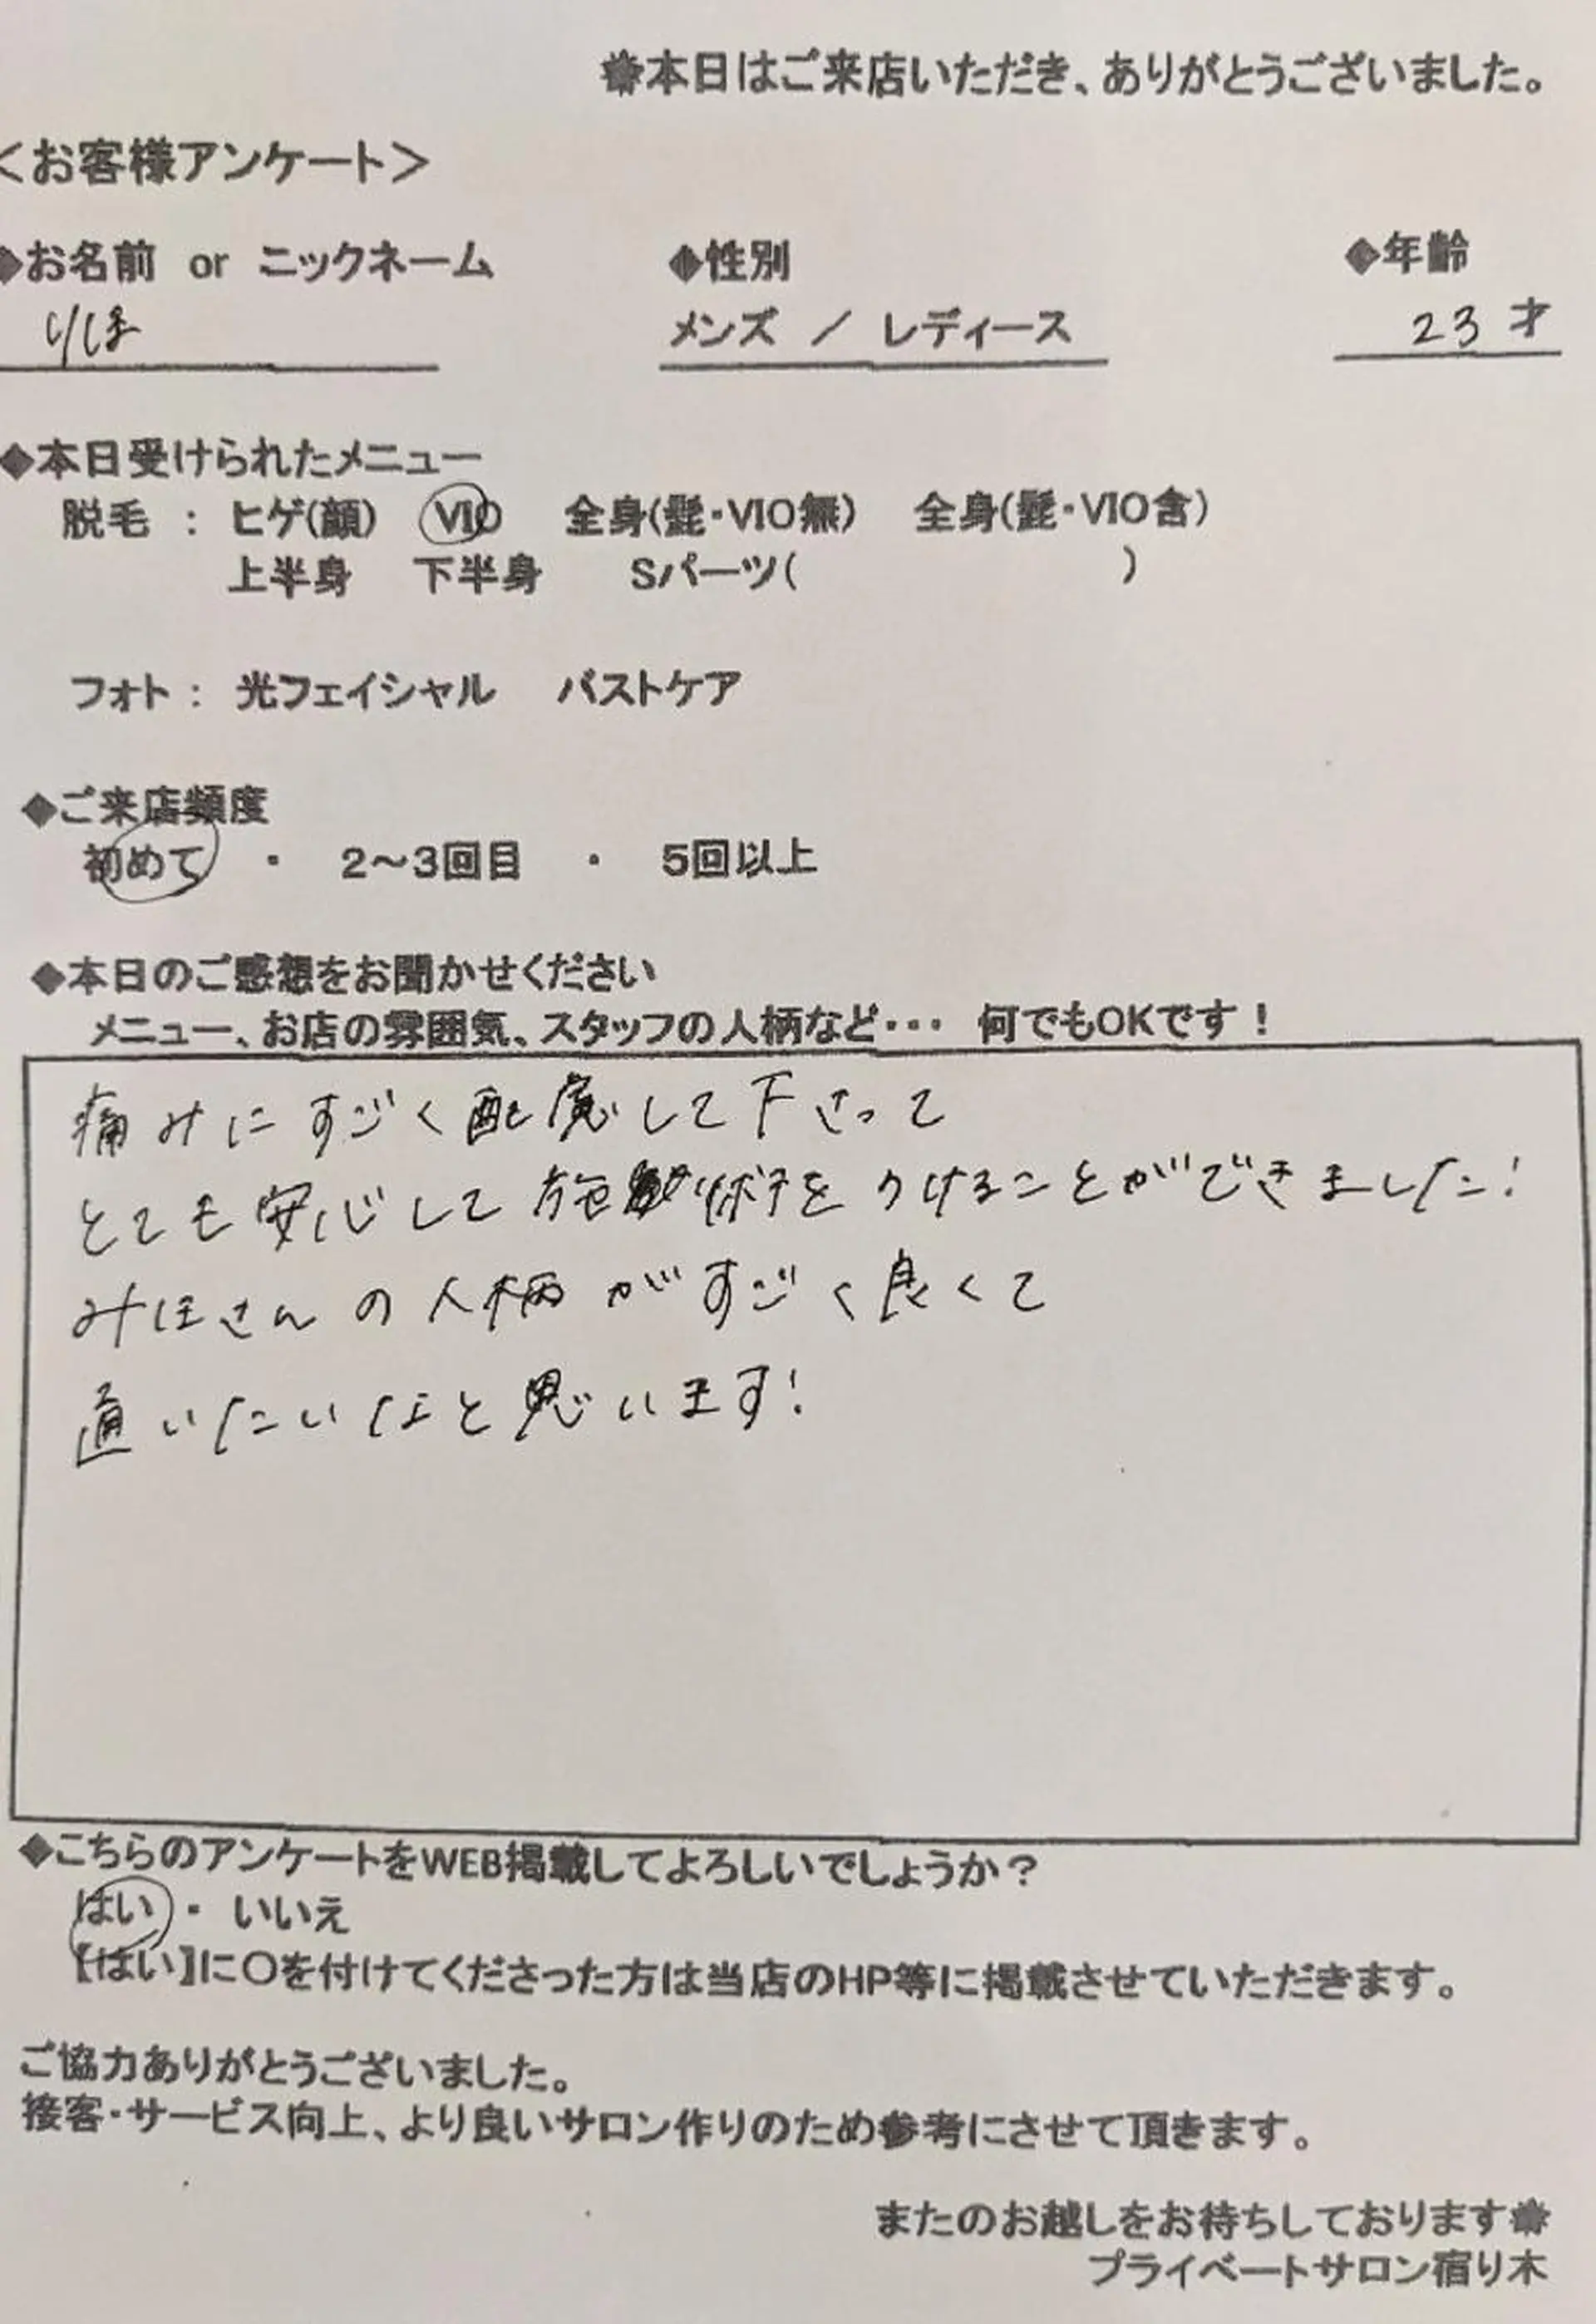 ✹本日はご来店いただき、ありがとうございました。
＜お客様アンケート＞
◆お名前 or ニックネーム ◆性別 ◆年齢
りほ メンズ ／ レディース 23 才
◆本日受けられたメニュー
脱毛 : ヒゲ(顔) VIO 全身(髭・VIO無) 全身(髭・VIO含)
上半身 下半身 Sパーツ( )
フォト : 光フェイシャル バストケア
◆ご来店頻度
初めて ・ 2～3回目 ・ 5回以上
◆本日のご感想をお聞かせください
メニュー、お店の雰囲気、スタッフの人柄など・・・ 何でもOKです！
痛みにすごく配慮して下さって
とても安心して施術をうけることができました!
みほさんの人柄がすごく良くて
通いたいなと思います!
◆こちらのアンケートをWEB掲載してよろしいでしょうか？
はい ・ いいえ
【はい】に〇を付けてくださった方は当店のHP等に掲載させていただきます。
ご協力ありがとうございました。
接客・サービス向上、より良いサロン作りのため参考にさせて頂きます。
またのお越しをお待ちしております✹
プライベートサロン宿り木